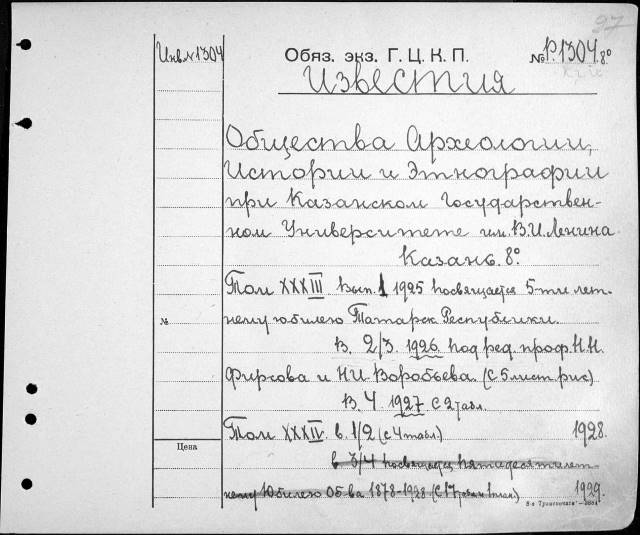 27
Инв № 1304
Обяз. экз. Г. Ц. К. П.
№ Р.1304.8°
Известия
Общества Археологии,
Истории и Этнографии
при Казанском Государствен-
ном Университете им. В.И. Ленина
Казань. 8°.
Том XXXIII Вып. 1 1925 посвящается 5-ти лет-
№
нему юбилею Татарск Республики.
В. 2/3. 1926. под ред. проф. Н.Н.
Фирсова и Н.И. Воробьева. (с 5 лист. рис)
В. 4. 1927 с 2 табл.
Том XXXIV. в. 1/2 (с 4 табл.) 1928.
Цена
в 3/4 посвящен пятидесятилет-
нему Юбилею Об-ва 1878-1928 (с 17 1929.